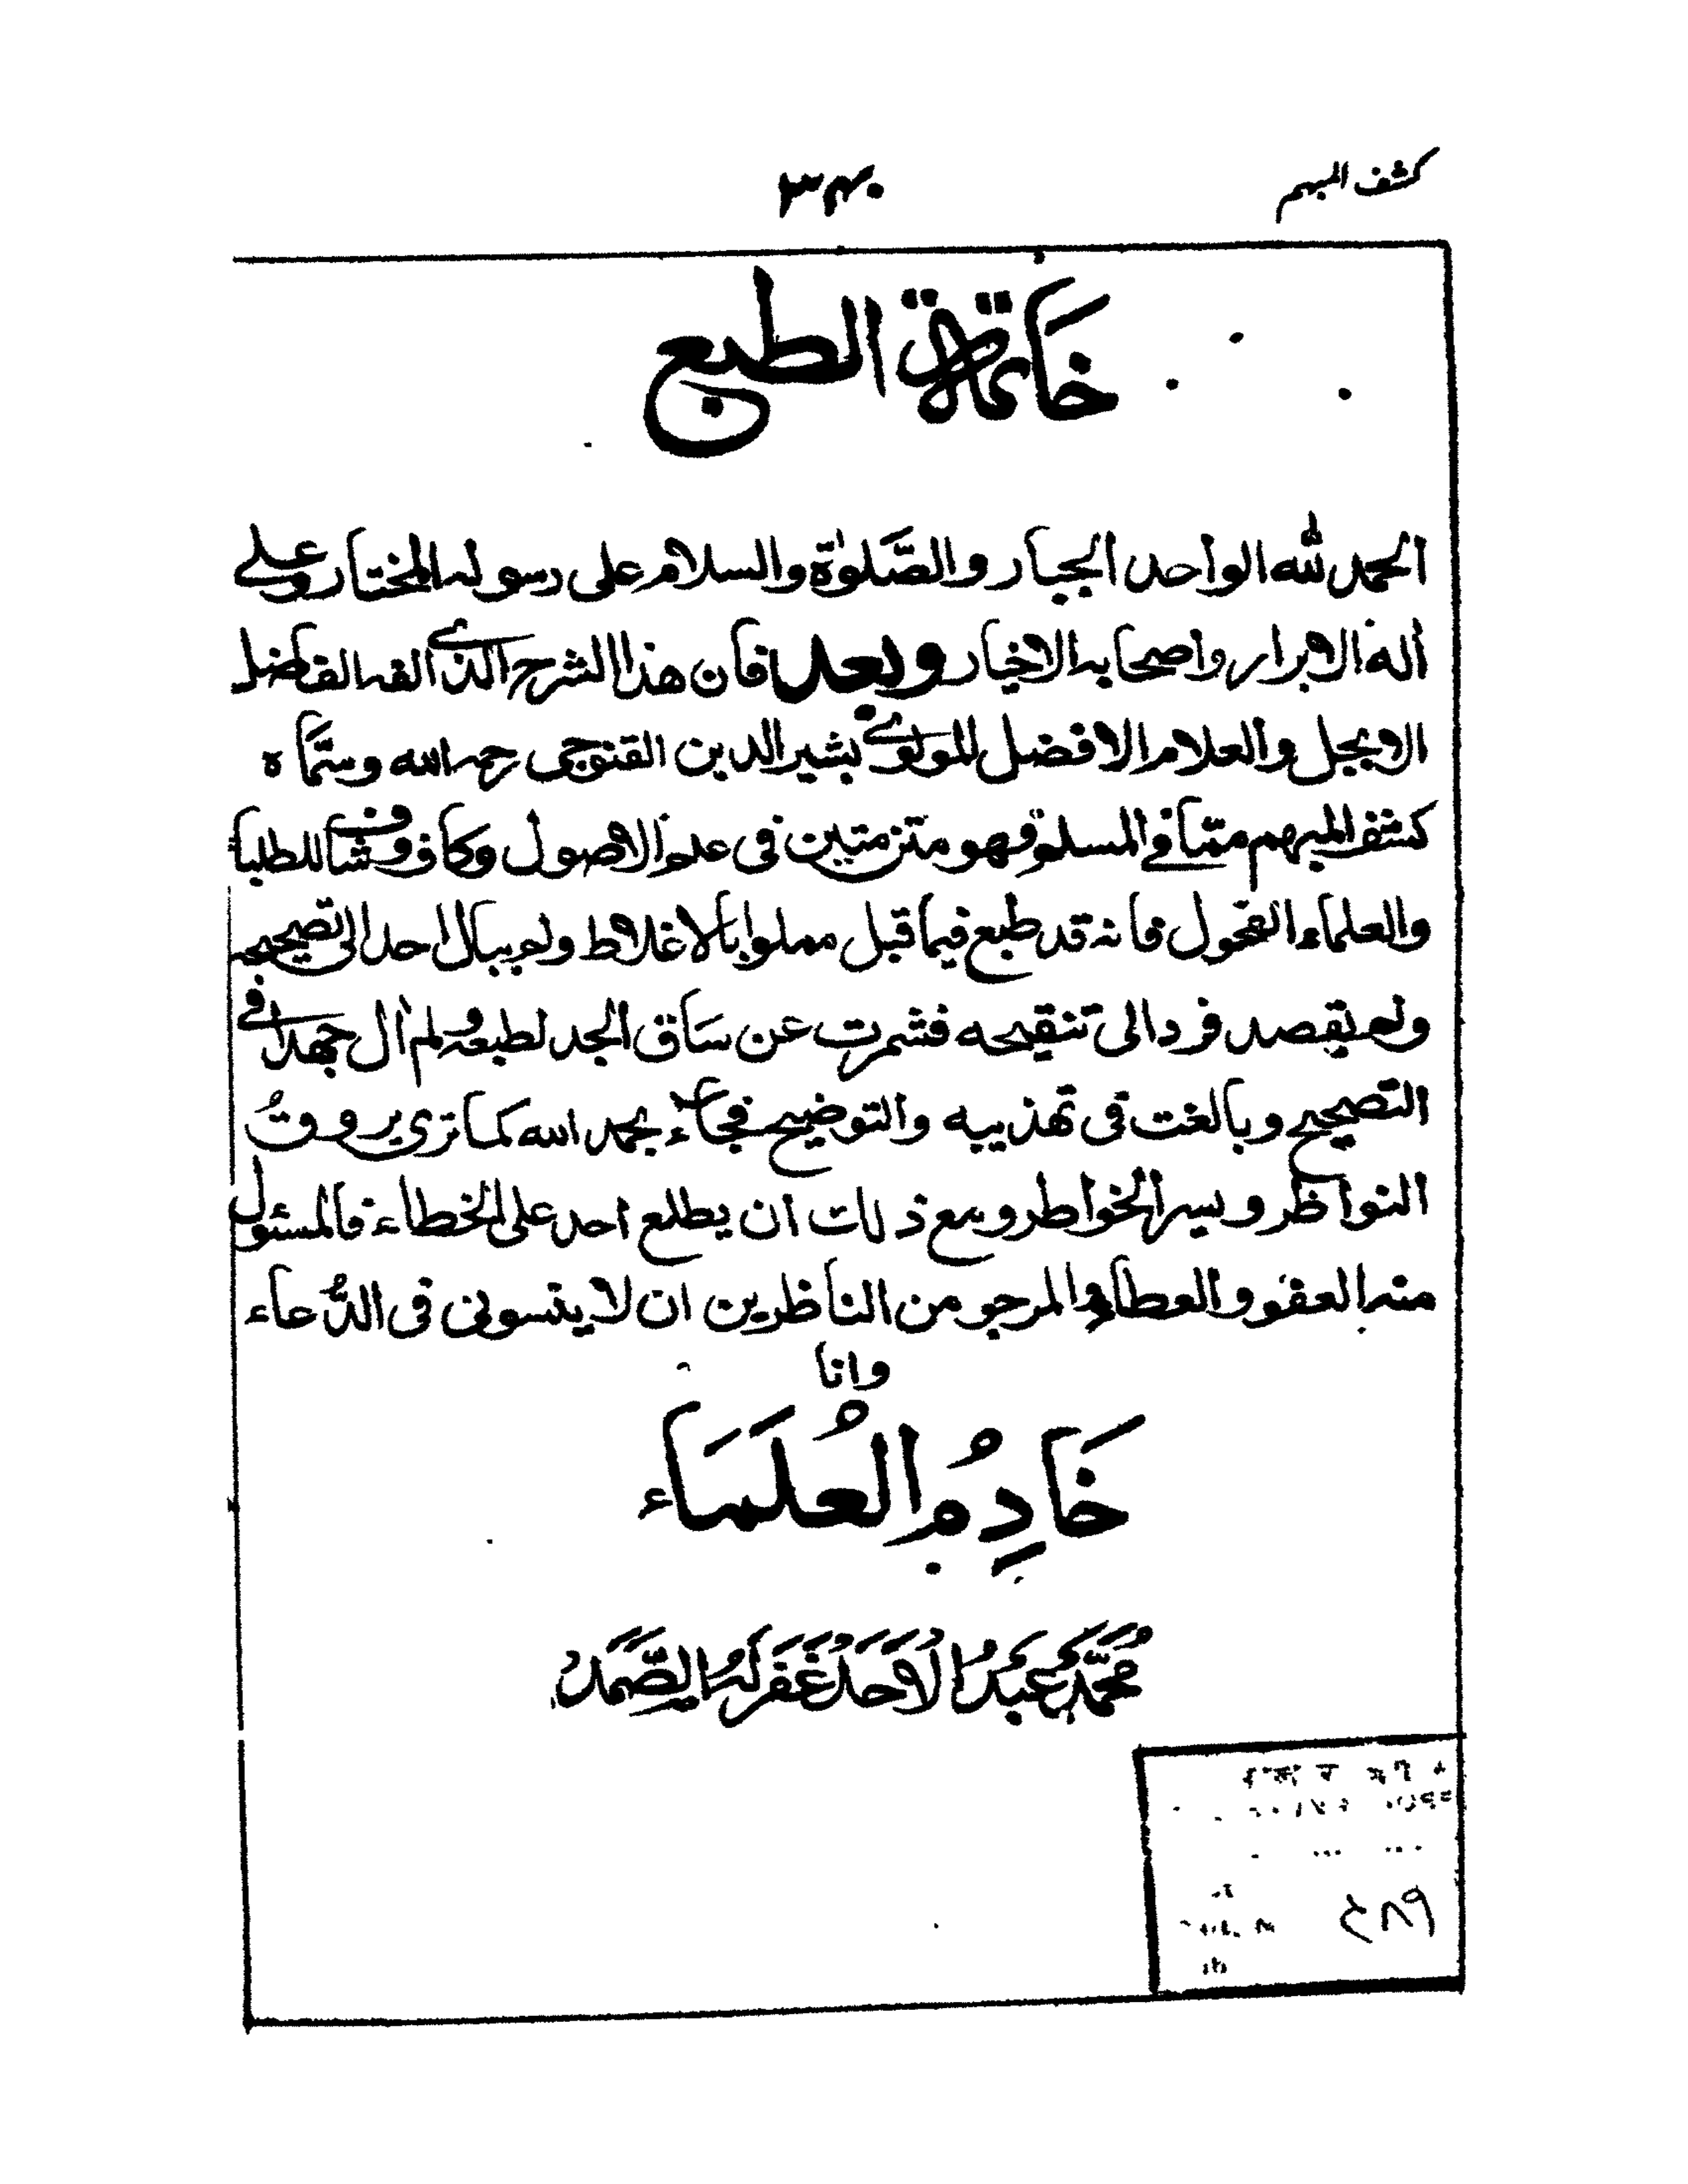 كشف المبهم
٣٤٠
خاتمة الطبع
الحمد لله الواحد الجبار والصَّلوٰة والسلام على رسوله المختار وعلى
آله الابرار واصحابه الاخيار وبعد فان هذا الشرح الذى الفه الفاضل
الابجل والعلام الافضل المولوى بشير الدين القنوجى رحمه الله وسمّاه
كشف المبهم ممّا فى المسلم فهو متن متين فى علم الاصول وكاف وشاف للطلباء
والعلماء الفحول فانه قد طبع فيما قبل مملوا بالاغلاط ولم يبال احد الى تصحيحه
ولم يقصد فرد الى تنقيحه فشمرت عن ساق الجد لطبعه ولم آل جهدا فى
التصحيح وبالغت فى تهذيبه والتوضيح فجاء بحمد الله كما ترى يروق
النواظر ويسر الخواطر ومع ذلك ان يطلع احد على الخطاء فالمسئول
منه العفو والعطاء والمرجو من الناظرين ان لا ينسونى فى الدُّعاء
وانا
خَادِمُ العُلَمَاء
مُحَمَّد عَبدُ الاَحَد غَفَرَلَهُ الصَّمَدُ